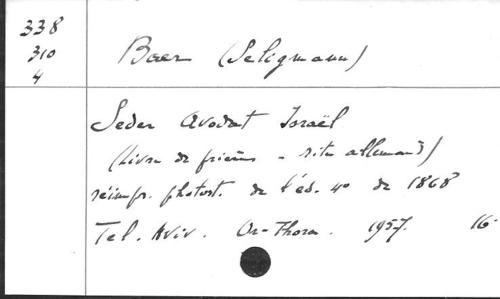 338
310
4
Baer (Seligmann)
Seder Avodat Israël
(Livre de prières - rite allemand)
réimpr. photost. de l'éd. 4° de 1868
Tel. Aviv. Or-Thora. 1957. 16°